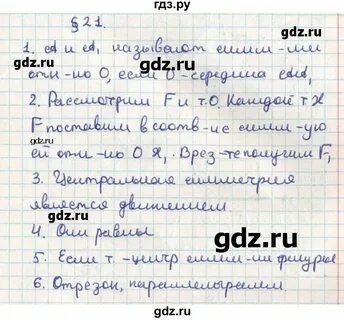 гдз.ру
§ 21.
1. А и А₁ называют симм-ми
отн-но О, если О-середина АА₁
2. Рассмотрим F и т.О. Каждой т X
F поставим в соотв-ие симм-ую
ей отн-но О X₁. В рез-те получим F₁
3. Центральная симметрия
является движением
4. Они равны
5. Если т. -центр симм-ии фигуры
6. Отрезок, параллелограмм.
gdz.ru
gdz.ru
gdz.ru
gdz.ru
gdz.ru